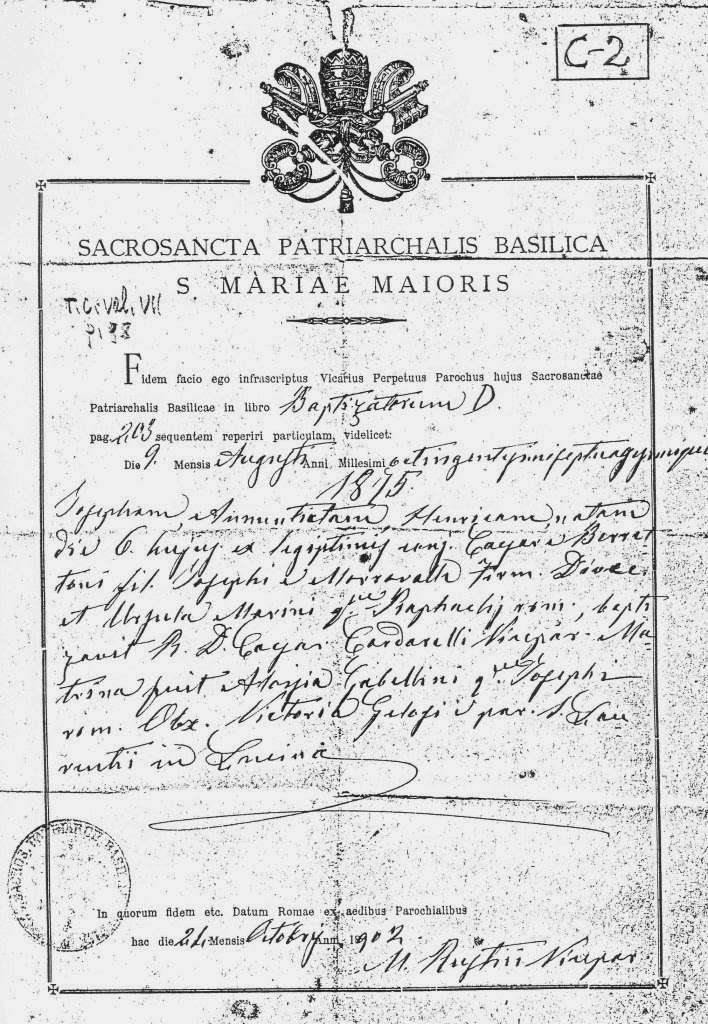 C-2
SACROSANCTA PATRIARCHALIS BASILICA
S MARIAE MAIORIS
T.C. Vol. VII
p. 98
Fidem facio ego infrascriptus Vicarius Perpetuus Parochus hujus Sacrosanctae
Patriarchalis Basilicae in libro Baptizatorum D.
pag. 203 sequentem reperiri particulam, videlicet:
Die 9. Mensis Augusti Anni Millesimi octingentesimi septuagesimi
1875
Josepham, Annuntiatam, Henricam, natam
die 6. hujus ex legiptimis conj. Caesare Berret
toni fil. Josephi e Morrovalle Firm. Dioec.
et Ursula Marini qm Raphaelis rom., bapti
zavit R. D. Caesar Cardarelli Vicepar. Ma-
trina fuit Aloysia Gabellini qm Josephi
rom. Obx. Victoria Gelosi e par. S. Lau
rentii in Lucina
In quorum fidem etc. Datum Romae ex aedibus Parochialibus
hac die Mensis Octobris Anni 1902
M. Vicepar